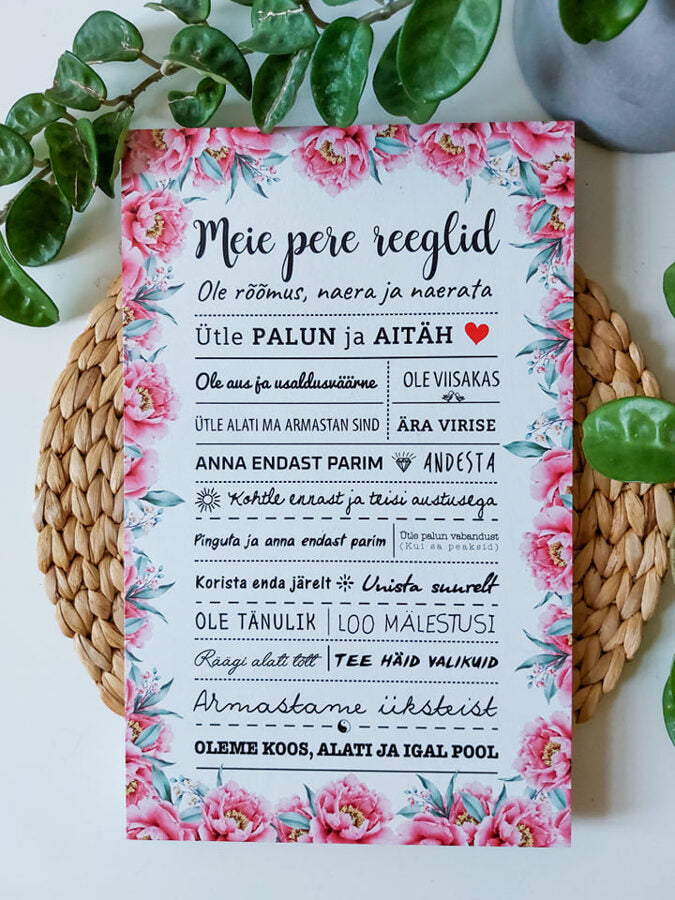 Meie pere reeglid
Ole rõõmus, naera ja naerata
Ütle PALUN ja AITÄH
Ole aus ja usaldusväärne
OLE VIISAKAS
ÜTLE ALATI MA ARMASTAN SIND
ÄRA VIRISE
ANNA ENDAST PARIM
ANDESTA
Kohtle ennast ja teisi austusega
Pinguta ja anna endast parim
Ütle palun vabandust
(Kui sa peaksid)
Korista enda järelt
Unista suurelt
OLE TÄNULIK
LOO MÄLESTUSI
Räägi alati tõtt
TEE HÄID VALIKUID
Armastame üksteist
OLEME KOOS, ALATI JA IGAL POOL